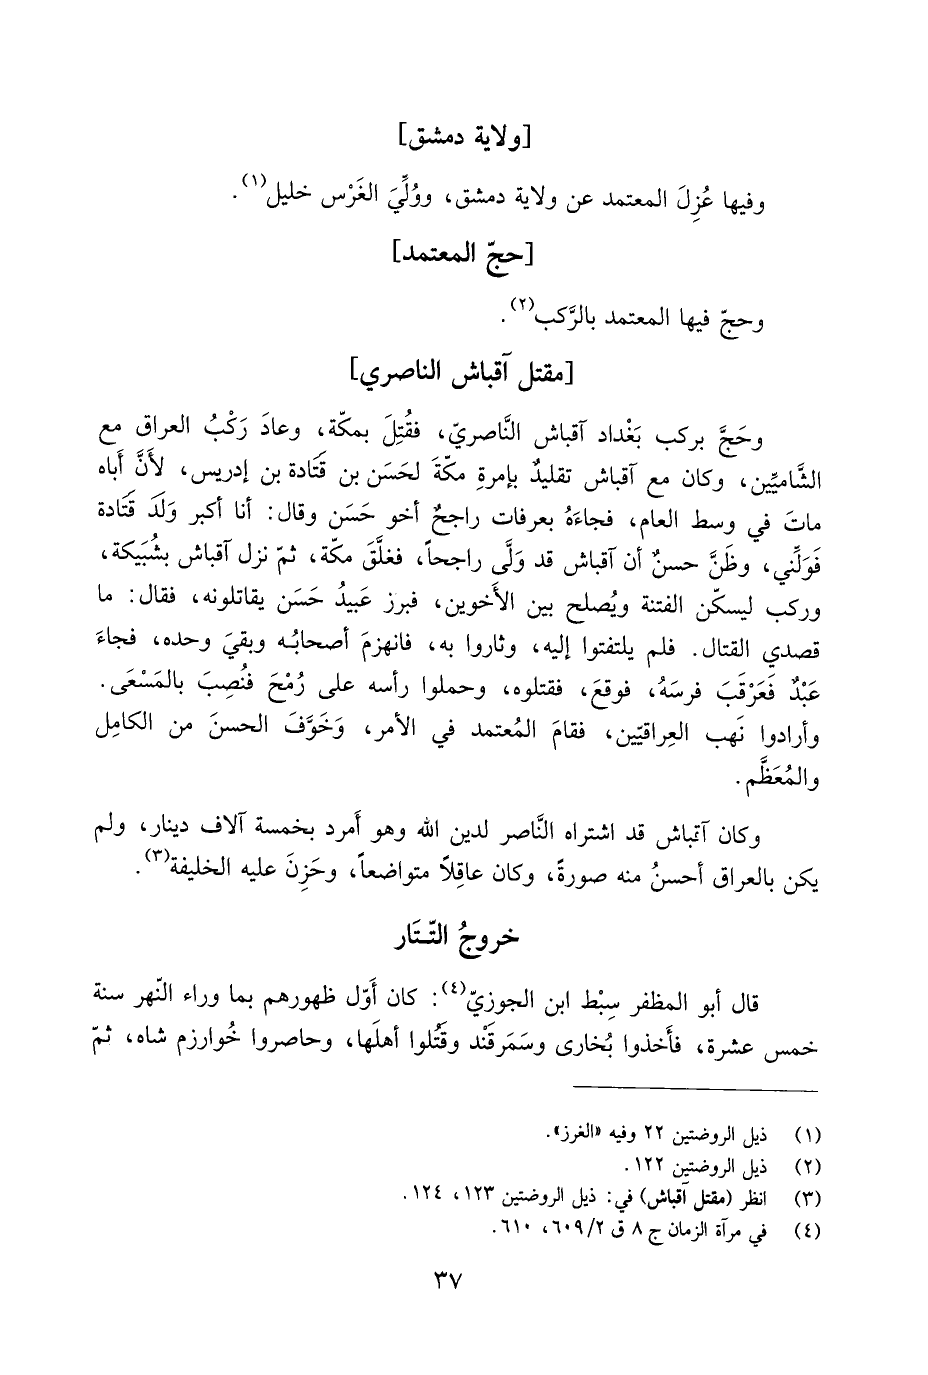 [ولاية دمشق]
وفيها عُزِلَ المعتمد عن ولاية دمشق، ووُلِّيَ الغَرْس خليل(١).
[حجّ المعتمد]
وحجّ فيها المعتمد بالرَّكب(٢).
[مقتل آقباش الناصري]
وحَجَّ بركب بَغْداد آقباش النَّاصريّ، فقُتِلَ بمكّة، وعادَ رَكْبُ العراق مع
الشَّاميِّين، وكان مع آقباش تقليدٌ بإمرةِ مكّةَ لحَسَن بن قَتَادة بن إدريس، لأَنَّ أَباه
ماتَ في وسط العام، فجاءَهُ بعرفات راجحٌ أخو حَسَن وقال: أنا أكبر وَلَدَ قَتَادة
فَوَلِّني، وظَنَّ حسنٌ أن آقباش قد وَلَّى راجحاً، فغلَّقَ مكّة، ثمّ نزل آقباش بشُبَيكة،
وركب ليسكّن الفتنة ويُصلح بين الأَخوين، فبرز عَبيدُ حَسَن يقاتلونه، فقال: ما
قصدي القتال. فلم يلتفتوا إليه، وثاروا به، فانهزمَ أصحابُه وبقيَ وحده، فجاءَ
عَبْدٌ فَعَرْقَبَ فرسَهُ، فوقعَ، فقتلوه، وحملوا رأسه على رُمْحَ فنُصِبَ بالمَسْعَى.
وأرادوا نَهب العِراقيّين، فقامَ المُعتمد في الأمر، وَخَوَّفَ الحسنَ من الكامِل
والمُعَظَّم.
وكان آقباش قد اشتراه النَّاصر لدين الله وهو أَمرد بخمسة آلاف دينار، ولم
يكن بالعراق أحسنُ منه صورةً، وكان عاقِلاً متواضعاً، وحَزِنَ عليه الخليفة(٣).
خروجُ التّتَار
قال أبو المظفر سِبْط ابن الجوزيّ(٤): كان أَوّل ظهورهم بما وراء النّهر سنة
خمس عشرة، فأَخذوا بُخارى وسَمَرقَنْد وقَتُلوا أهلَها، وحاصروا خُوارزم شاه، ثمّ
(١) ذيل الروضتين ٢٢ وفيه «الغرز».
(٢) ذيل الروضتين ١٢٢.
(٣) انظر (مقتل آقباش) في: ذيل الروضتين ١٢٣، ١٢٤.
(٤) في مرآة الزمان ج ٨ ق ٦٠٩/٢، ٦١٠.
٣٧